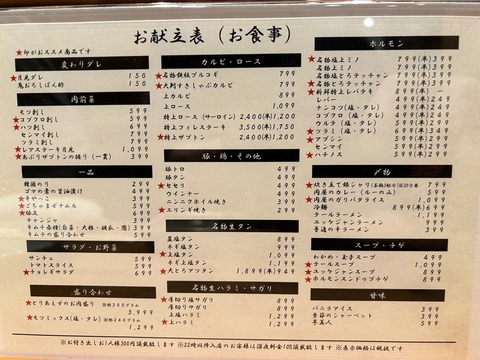 お献立表（お食事）
★印がおススメ商品です
変わりダレ
★月見ダレ 150
鬼おろしぽん酢 150
肉前菜
モツ刺し 599
★コブクロ刺し 599
★ハツ刺し 599
センマイ刺し 599
ツラミ刺し 799
★レアステーキ月見 1,099
★あぶりザブトンの握り（一貫） 399
一品
韓国のり 299
ゴマの葉の醤油漬け 499
★キャベつこ 499
★ごちゃまぜナムル 499
★珍又 499
チャンジャ 499
キムチ各種（白菜・大根・胡瓜・葱） 399
キムチの盛り合わせ 599
サラダ・お野菜
サンチュ 599
トマトスライス 599
★チョレギサラダ 699
盛り合わせ
★とりあえずのお肉盛り 総物300グラム
3,999
★モツミックス（塩・タレ） 総物240グラム
1,299
カルビ・ロース
★名物鉄板プルコギ 799
★大判すきしゃぶカルビ 799
上カルビ 899
上ロース 1,099
特上ロース（サーロイン） 2,400(半)1,200
特上フィレステーキ 3,500(半)1,750
★特上ザブトン 2,400(半)1,200
豚・鶏・その他
豚トロ 499
鶏トロ 499
★セセリ 499
ウインナー 499
ニンニクホイル焼き 399
★エリンギ焼き 299
名物生タン
★葱塩タン 899
ネギ塩タン 999
★上塩タン 1,299
ネギ上塩タン 1,499
★大とろアツタン 1,899(半)949
名物生ハラミ・サガリ
★厚切り塩サガリ 899
★厚切りサガリ 899
★上塩ハラミ 1,299
★上ハラミ 1,299
ホルモン
★名物塩上ミノ 799(半)399
★名物上ミノ 799(半)399
★名物塩とろテッチャン 599(半)299
★名物とろテッチャン 599(半)299
★新鮮特上レバテキ 899(半)449
レバー 499(半)249
テンコツ（塩・タレ） 499(半)249
コブクロ（塩・タレ） 499(半)249
ウルテ（塩・タレ） 499(半)249
★ツラミ（塩・タレ） 699(半)349
★アブシン 599(半)299
★センマイ 599(半)299
★ハチノス 599(半)299
〆物
★炊き立て銀シャリ 799
肉屋のカレー（ルーのみ） 599
★肉屋のガリバタライス 999
★冷麺 899(半)699
テールラーメン 1,299
ユッケジャンラーメン 999
普通のキムラーメン 399
スープ・チゲ
わかめ・玉子スープ 399
★テールスープ 1,099
★ユッケジャンスープ 899
★ホルモンチゲスープ 999
甘味
バニラアイス 399
季節のシャーベット 399
杏美人 399
※お付き出しお1人様300円頂戴致します ※22時以降入店のお客様は深夜料金10%頂戴致します ※表示価格は税抜です